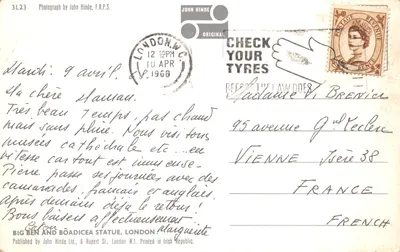 3L23
Photograph by John Hinde, F.R.P.S.
JOHN HINDE
ORIGINAL
LONDON. W.C.
12 15PM
10 APR
1968
CHECK
YOUR
TYRES
THE LAW DOES
Mardi. 9 avril.
Ma chère Maman.
Très beau temps, pas chaud
mais sans pluie. Nous visitons
musées cathédrale etc... en
vitesse car tout est immense.
Pierre passe ses journées avec des
camarades, français et anglais.
après demain déjà le retour!
Bons baisers affectueusement
Marguerite
Madame V. Brenier
95 avenue Gal Leclerc
VIENNE Isère 38
FRANCE
FRENCH
BIG BEN AND BOADICEA STATUE, LONDON
Published by John Hinde Ltd., 6 Argent St., London W.1. Printed in Irish Republic.